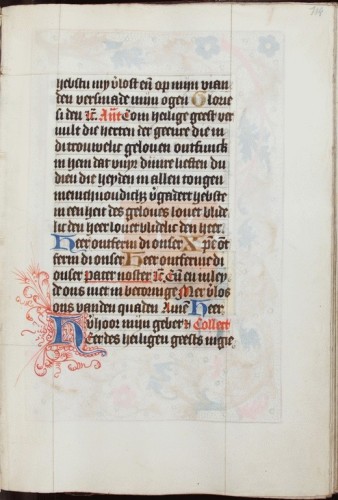 hebstu my v̓lost en̄ op mijn vian
den versmade mijn ogen Glorie
si den ic̄. Ant̄ Com heilige geest ver
vult die herten der geenre die in
di trouwelic geloven ontfunck
in hem dat vuyr dinre liefden du
dien die heyden in allen tongen
menichvoudich v̓gadert hebste
in eenheit des geloves lovet blide
lic den heer lovet blidelic den heer
Heer ontferm di onser Xp̄c ōt
ferm di onser Heer ontferme di
onser pater noster ic̄. En̄ en ley
de ons niet in becoringe Mer v̓los
ons vanden quaden Amē Heer
V̓hoor mijn gebet Collect
Heer des heiligen geests